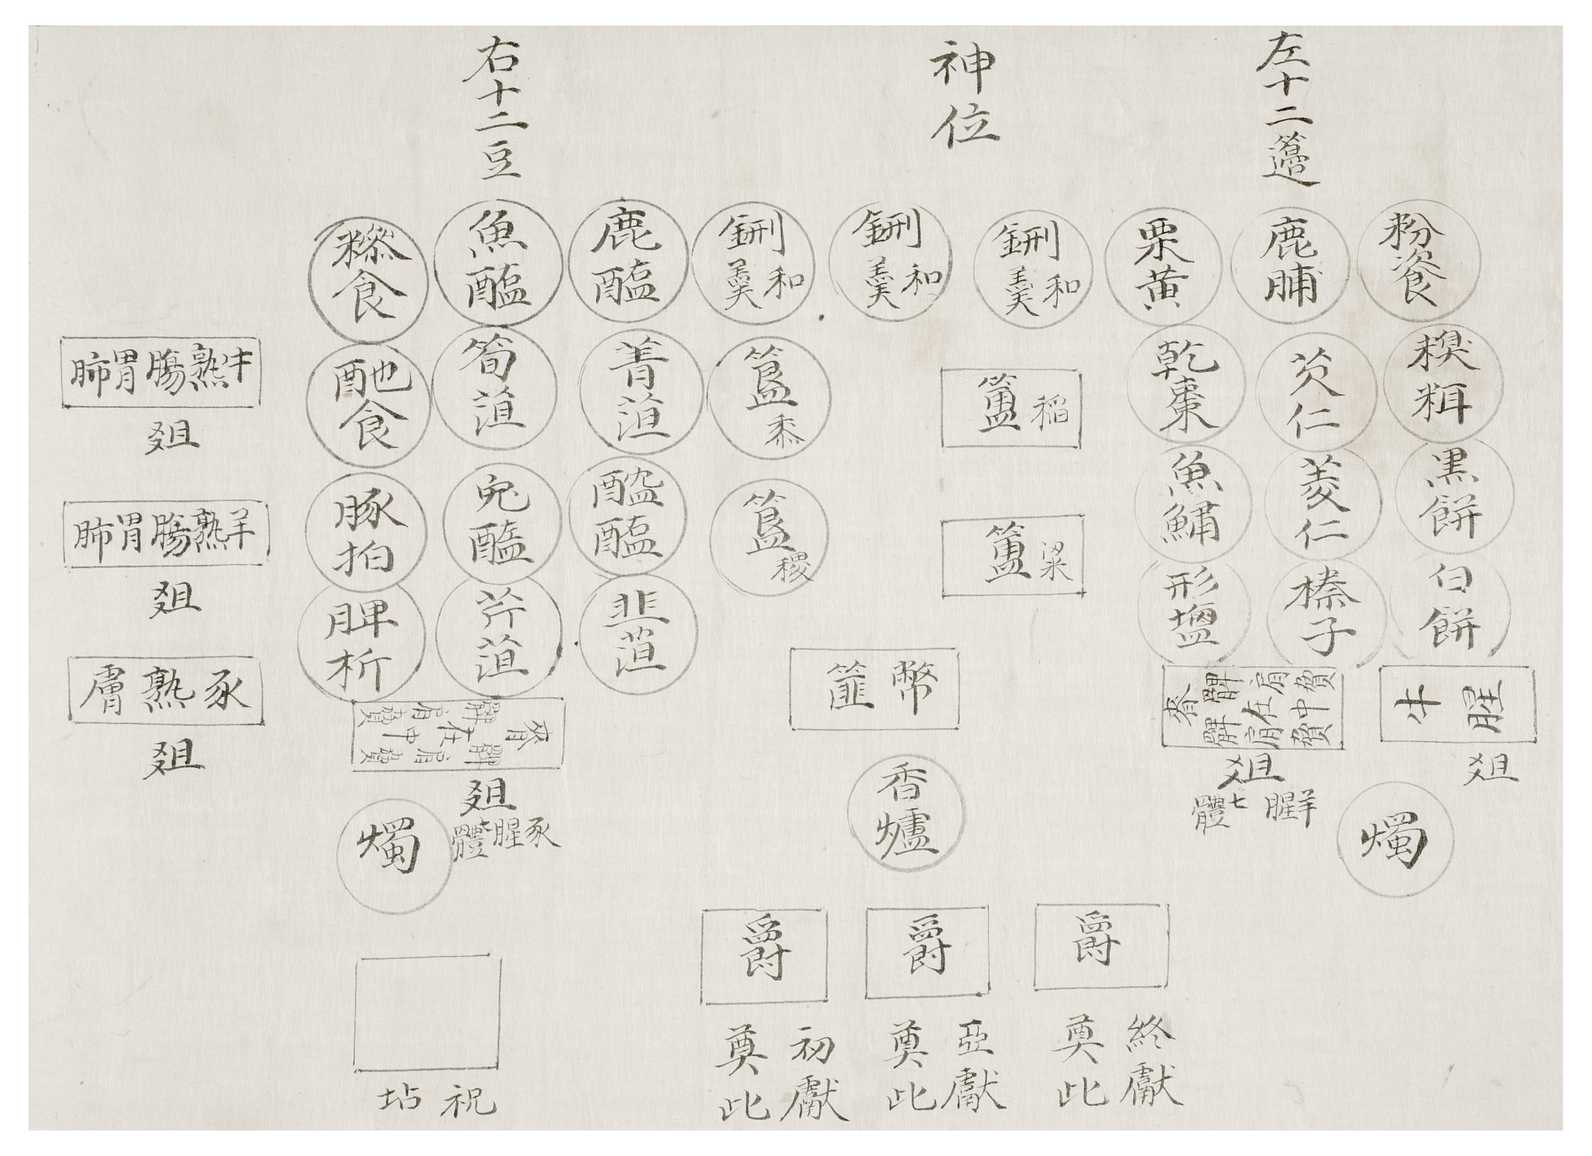 左十二籩
神位
右十二豆
粉餈
鹿脯
栗黄
鉶和羹
鉶和羹
鉶和羹
鹿醢
魚醢
糝食
糗餌
芡仁
乾棗
簠稻
簋黍
菁菹
筍菹
酏食
黒餅
菱仁
魚鱐
簠粱
簋稷
醓醢
兔醢
豚拍
白餅
榛子
形塩
韭菹
芹菹
脾析
牛熟腸胃肺
俎
羊熟腸胃肺
俎
豕熟膚
俎
幣篚
牛腥
俎
俎
羊腥七體
俎
豕腥七體
燭
香爐
燭
爵
終獻
奠此
爵
亞獻
奠此
爵
初獻
奠此
祝坫